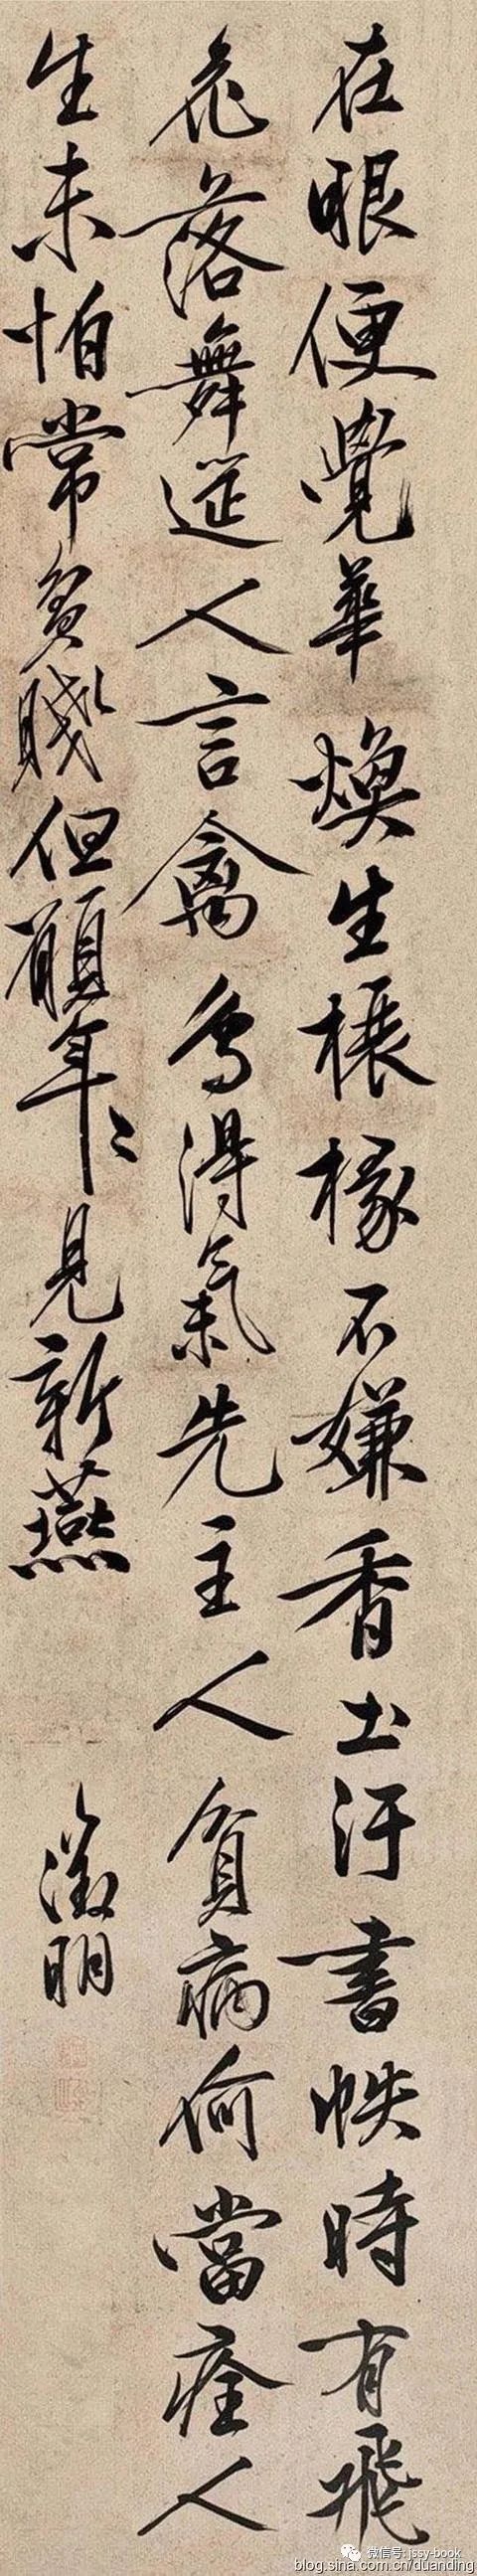 在眼便覺華煥生榱椽不嫌香土汙書帙時有飛
花落舞筵人言禽鳥得氣先主人貧病何當痊人
生未怕常貧賤但願年〻見新燕
徵明
微信号: jssy-book
blog.sina.com.cn/duanding